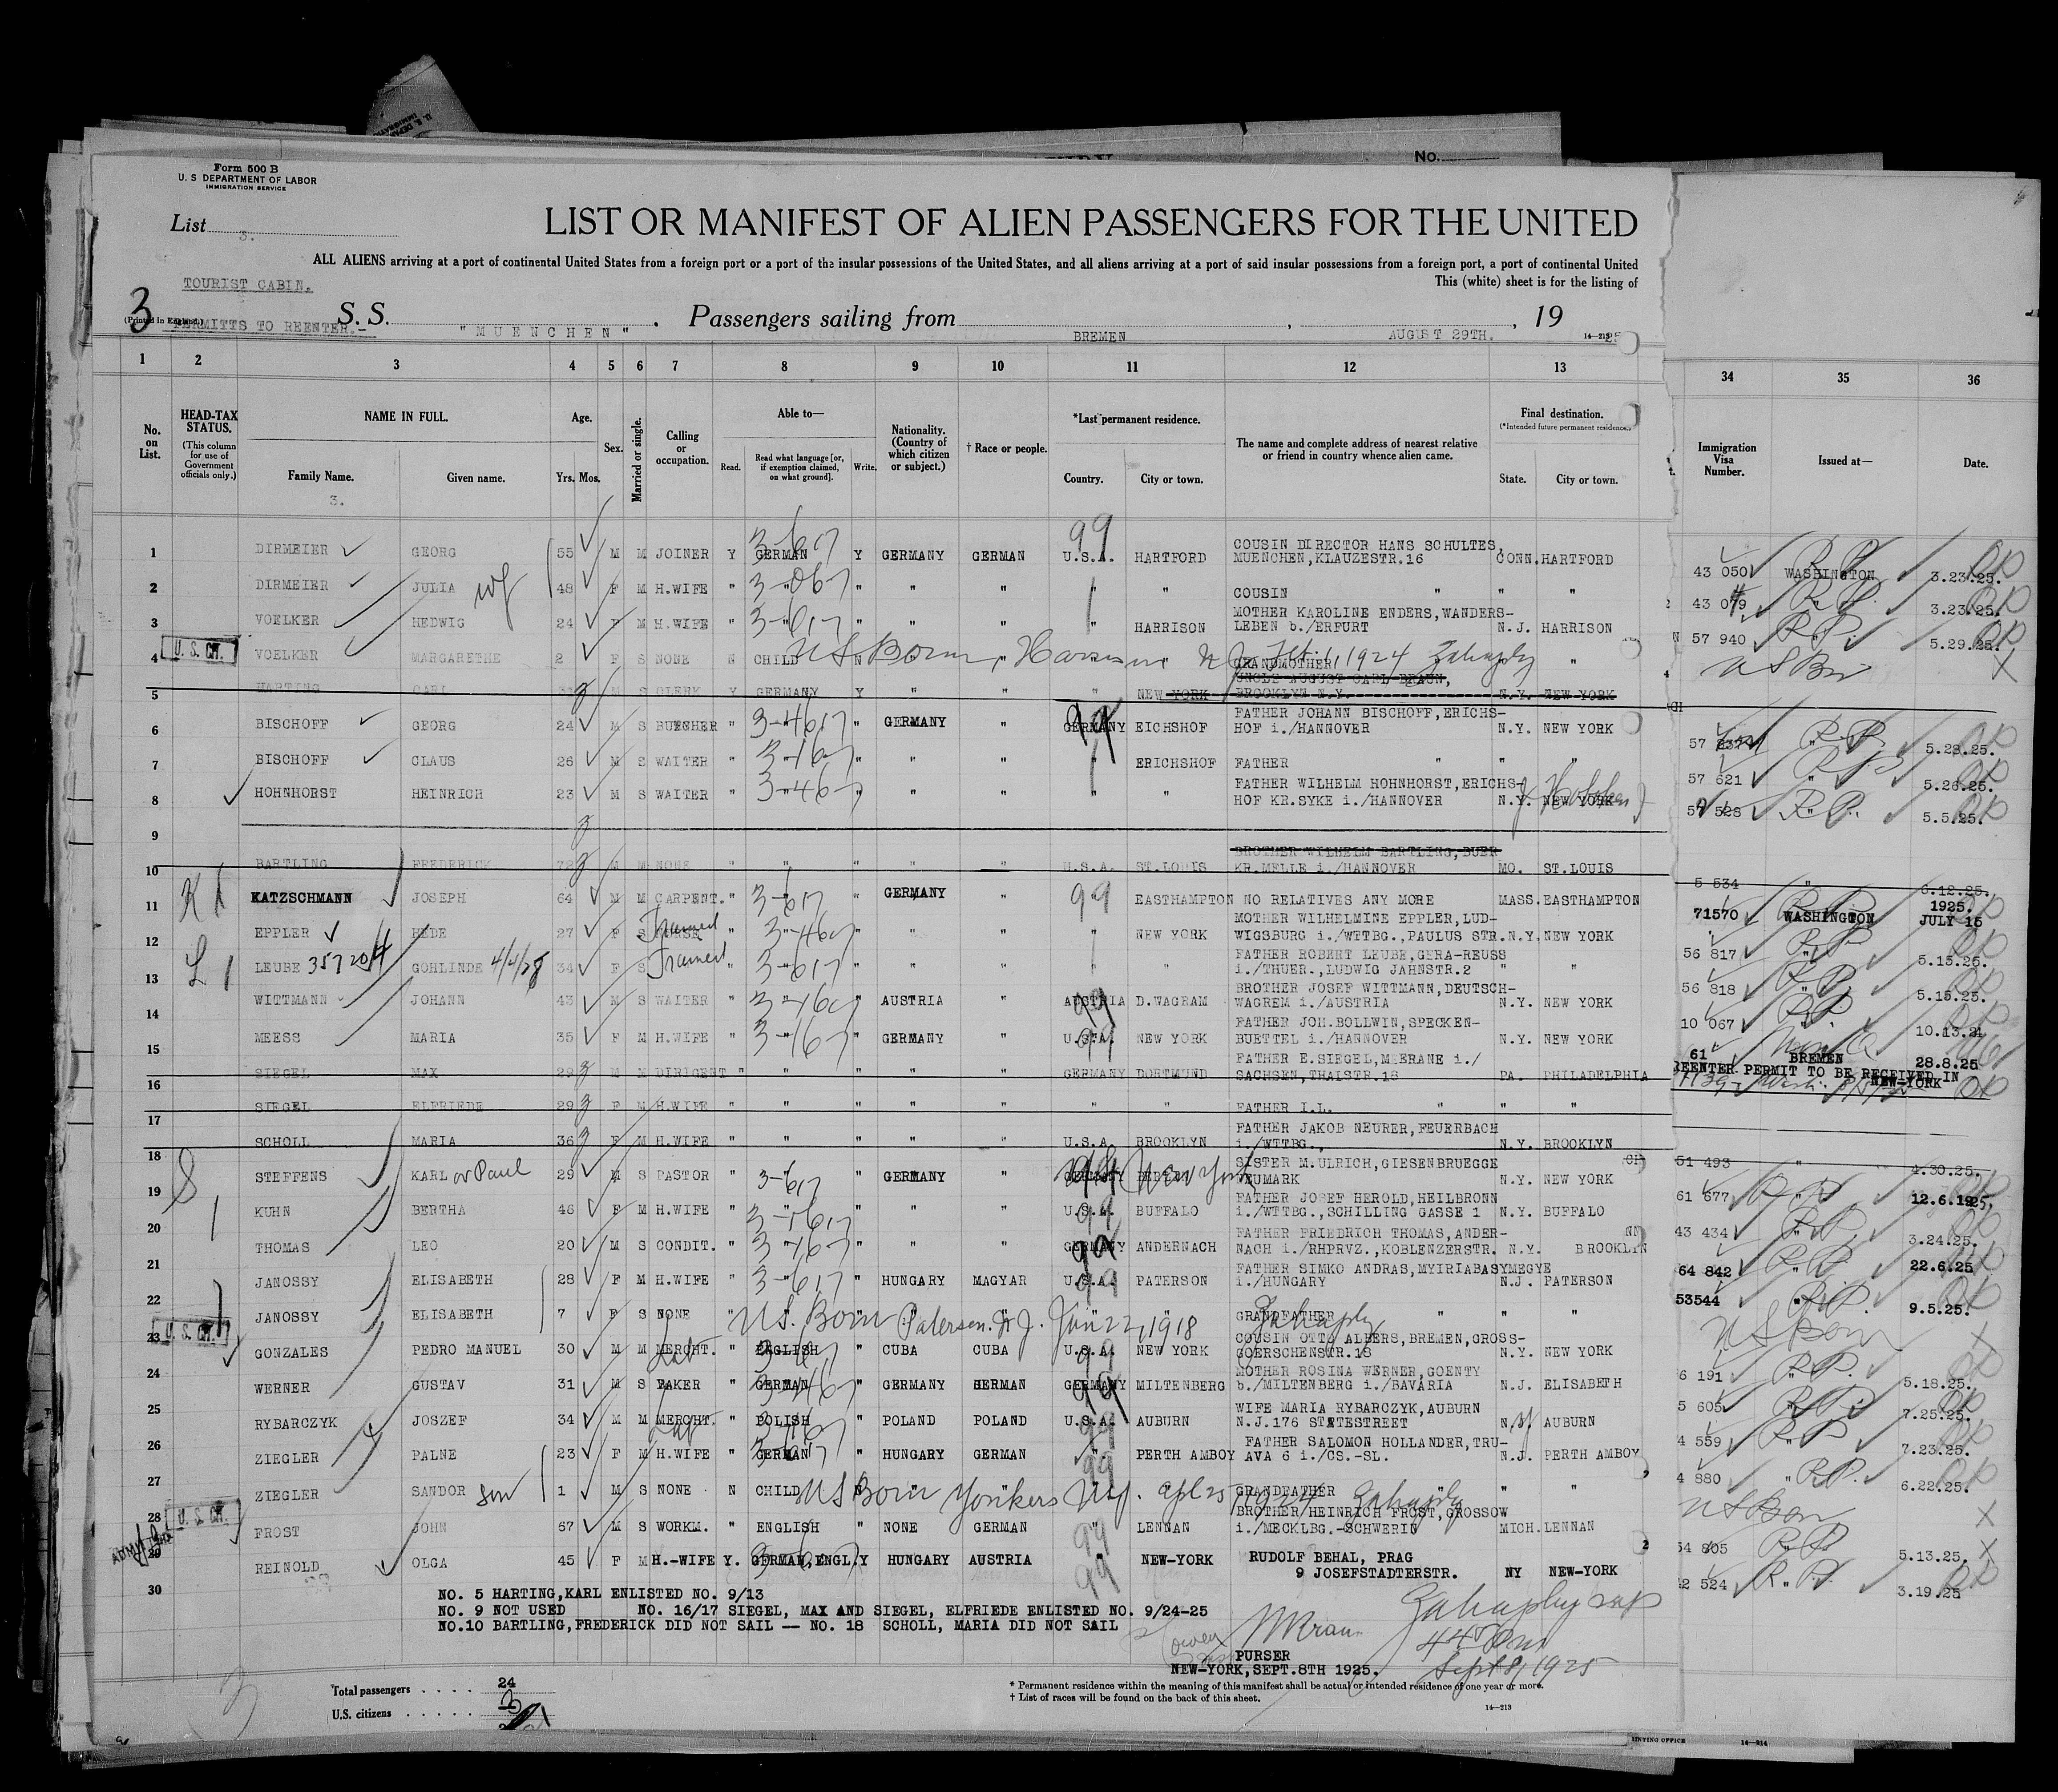 Form 500 B
U. S DEPARTMENT OF LABOR
IMMIGRATION SERVICE
No.
List 3.
LIST OR MANIFEST OF ALIEN PASSENGERS FOR THE UNITED
ALL ALIENS arriving at a port of continental United States from a foreign port or a port of the insular possessions of the United States, and all aliens arriving at a port of said insular possessions from a foreign port, a port of continental United
This (white) sheet is for the listing of
TOURIST CABIN.
3 (Printed in England.) PERMITTS TO REENTER.- S. S. "MUENCHEN". Passengers sailing from BREMEN, AUGUST 29TH., 19 25
1 2 3 4 5 6 7 8 9 10 11 12 13 34 35 36
No. on List.
HEAD-TAX STATUS. (This column for use of Government officials only.)
NAME IN FULL.
Family Name. Given name.
3.
Age. Yrs. Mos.
Sex.
Married or single.
Calling or occupation.
Able to—
Read. Read what language [or, if exemption claimed, on what ground]. Write.
Nationality. (Country of which citizen or subject.)
† Race or people.
*Last permanent residence.
Country. City or town.
The name and complete address of nearest relative or friend in country whence alien came.
Final destination. (*Intended future permanent residence.)
State. City or town.
Immigration Visa Number. Issued at— Date.
1 DIRMEIER GEORG 55 M M JOINER Y GERMAN Y GERMANY GERMAN U.S.A. HARTFORD COUSIN DIRECTOR HANS SCHULTES, MUENCHEN,KLAUZESTR.16 CONN. HARTFORD 43 050 WASHINGTON 3.23.25.
2 DIRMEIER JULIA wf 48 F M H.WIFE " " " " " " " COUSIN " " " 43 079 3.23.25.
3 VOELKER HEDWIG 24 F M H.WIFE " " " " " " HARRISON MOTHER KAROLINE ENDERS,WANDERS- LEBEN b./ERFURT N.J. HARRISON 57 940 5.29.25.
U. S. CIT.
4 VOELKER MARGARETHE 2 F S NONE N CHILD N US Born, Harrison N J Feb 1, 1924 GRANDMOTHER " US Born
5 HARTING CARL M S CLERK Y GERMANY Y " " " NEW YORK UNCLE AUGUST CARL BRAUN, BROOKLYN N.Y. N.Y. NEW YORK
6 BISCHOFF GEORG 24 M S BUTCHER " " " GERMANY " GERMANY EICHSHOF FATHER JOHANN BISCHOFF,ERICHS- HOF i./HANNOVER N.Y. NEW YORK 57 5.23.25.
7 BISCHOFF CLAUS 26 M S WAITER " " " " " " ERICHSHOF FATHER " " " 57 621 " 5.26.25.
8 HOHNHORST HEINRICH 23 M S WAITER " " " " " " " FATHER WILHELM HOHNHORST,ERICHS- HOF KR.SYKE i./HANNOVER N.Y. NEW YORK 57 528 " 5.5.25.
9
10 BARTLING FREDERICK 72 M M NONE " " " " " U.S.A. ST.LOUIS BROTHER WILHELM BARTLING,BUER KR.MELLE i./HANNOVER MO. ST.LOUIS 5 534 " 6.12.25.
11 KATZSCHMANN JOSEPH 64 M M CARPENT. " " " GERMANY " " EASTHAMPTON NO RELATIVES ANY MORE MASS. EASTHAMPTON 71570 WASHINGTON 1925. JULY 15
12 EPPLER HEDE 27 F S Trained " " " " " " NEW YORK MOTHER WILHELMINE EPPLER,LUD- WIGSBURG i./WTTBG.,PAULUS STR. N.Y. NEW YORK 56 817 " 5.15.25.
13 LEUBE GOHLINDE 4/4/28 34 F S Trained " " " " " " " FATHER ROBERT LEUBE,GERA-REUSS i./THUER.,LUDWIG JAHNSTR.2 " " 56 818 " 5.15.25.
14 WITTMANN JOHANN 43 M S WAITER " " " AUSTRIA " AUSTRIA D.WAGRAM BROTHER JOSEF WITTMANN,DEUTSCH- WAGREM i./AUSTRIA N.Y. NEW YORK 10 067 " 10.13.24
15 MEESS MARIA 35 F M H.WIFE " " " GERMANY " U.S.A. NEW YORK FATHER JOH.BOLLWIN,SPECKEN- BUETTEL i./HANNOVER N.Y. NEW YORK 61 BREMEN 28.8.25
REENTER PERMIT TO BE RECEIVED IN NEW-YORK
16 SIEGEL MAX 29 M M DIRIGENT " " " " " GERMANY DORTMUND FATHER E.SIEGEL,MEERANE i./ SACHSEN,THALSTR.18 PA. PHILADELPHIA
17 SIEGEL ELFRIEDE 29 F M H.WIFE " " " " " " " FATHER I.L. " " "
18 SCHOLL MARIA 36 F M H.WIFE " " " " " U.S.A. BROOKLYN FATHER JAKOB NEURER,FEUERBACH i./WTTBG., N.Y. BROOKLYN 51 493 " 4.30.25.
19 STEFFENS KARL or Paul 29 M S PASTOR " " " GERMANY " GERMANY New York SISTER M.ULRICH,GIESENBRUEGGE NEUMARK N.Y. NEW YORK 61 677 " 12.6.1925,
20 KUHN BERTHA 46 F M H.WIFE " " " " " U.S.A. BUFFALO FATHER JOSEF HEROLD,HEILBRONN i./WTTBG.,SCHILLING GASSE 1 N.Y. BUFFALO 43 434 " 3.24.25.
21 THOMAS LEO 20 M S CONDIT. " " " " " GERMANY ANDERNACH FATHER FRIEDRICH THOMAS,ANDER- NACH i./RHPRVZ.,KOBLENZERSTR. N.Y. BROOKLYN 64 842 " 22.6.25
22 JANOSSY ELISABETH 28 F M H.WIFE " " " HUNGARY MAGYAR U.S.A. PATERSON FATHER SIMKO ANDRAS,MYIRIABASYMEGYE i./HUNGARY N.J. PATERSON 53544 " 9.5.25.
U. S. CIT.
23 JANOSSY ELISABETH 7 F S NONE " US. Born Paterson. N J. Jun 22, 1918 GRANDFATHER " " " US born
24 GONZALES PEDRO MANUEL 30 M M MERCHT. " ENGLISH " CUBA CUBA U.S.A. NEW YORK COUSIN OTTO ALBERS,BREMEN,GROSS- GOERSCHENSTR.18 N.Y. NEW YORK 6 191 " 5.18.25.
25 WERNER GUSTAV 31 M S BAKER " GERMAN " GERMANY GERMAN GERMANY MILTENBERG MOTHER ROSINA WERNER,GOENTY b./MILTENBERG i./BAVARIA N.J. ELISABETH 5 605 " 7.25.25.
26 RYBARCZYK JOSZEF 34 M M MERCHT. " POLISH " POLAND POLAND U.S.A. AUBURN WIFE MARIA RYBARCZYK,AUBURN N.J.176 STATESTREET N. AUBURN 4 559 " 7.23.25.
27 ZIEGLER PALNE 23 F M H.WIFE " GERMAN " HUNGARY GERMAN " PERTH AMBOY FATHER SALOMON HOLLANDER,TRU- AVA 6 i./CS.-SL. N.J. PERTH AMBOY 4 880 " 6.22.25.
U. S. CIT.
28 ZIEGLER SANDOR son 1 M S NONE N CHILD US Born Yonkers N.Y. Apl 25, 1924 GRANDFATHER " " " US Born
29 FROST JOHN 67 M S WORKM. " ENGLISH " NONE GERMAN " LENNAN BROTHER HEINRICH FROST,GROSSOW i./MECKLBG.-SCHWERIN MICH. LENNAN 54 805 " 5.13.25.
30 REINOLD OLGA 45 F M H.-WIFE Y. GERMAN,ENGL. Y HUNGARY AUSTRIA " NEW-YORK RUDOLF BEHAL, PRAG 9 JOSEFSTADTERSTR. NY NEW-YORK 42 524 " 3.19.25
NO. 5 HARTING,KARL ENLISTED NO. 9/13
NO. 9 NOT USED NO. 16/17 SIEGEL, MAX AND SIEGEL, ELFRIEDE ENLISTED NO. 9/24-25
NO.10 BARTLING,FREDERICK DID NOT SAIL -- NO. 18 SCHOLL, MARIA DID NOT SAIL
PURSER
NEW-YORK,SEPT.8TH 1925. Sept 8, 1925
Total passengers . . . . 24
U.S. citizens . . . . . 3
* Permanent residence within the meaning of this manifest shall be actual or intended residence of one year or more.
† List of races will be found on the back of this sheet.
14—213
14—214